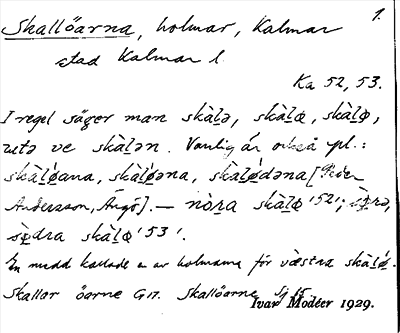 1.
Skallöarna, holmar, Kalmar
stad Kalmar l.
Ka 52, 53.
I regel säger man skàl̠ə, skàl̠α, skàl̠o̠,
ute ve skàl̠ən. Vanlig är också pl.:
skàl̠ǿana, skàl̠ǿəna, skàl̠ǿdəna [Peder
Andersson, Ängö]. — nòra skàl̠o̠ '52';
sødra skàl̠o̠ '53'.
En mudd kallade en av holmarna för væstra skàl̠ǿ.
Skallar öarne G17. Skallöarne Sj 15.
Ivar Modéer 1929.